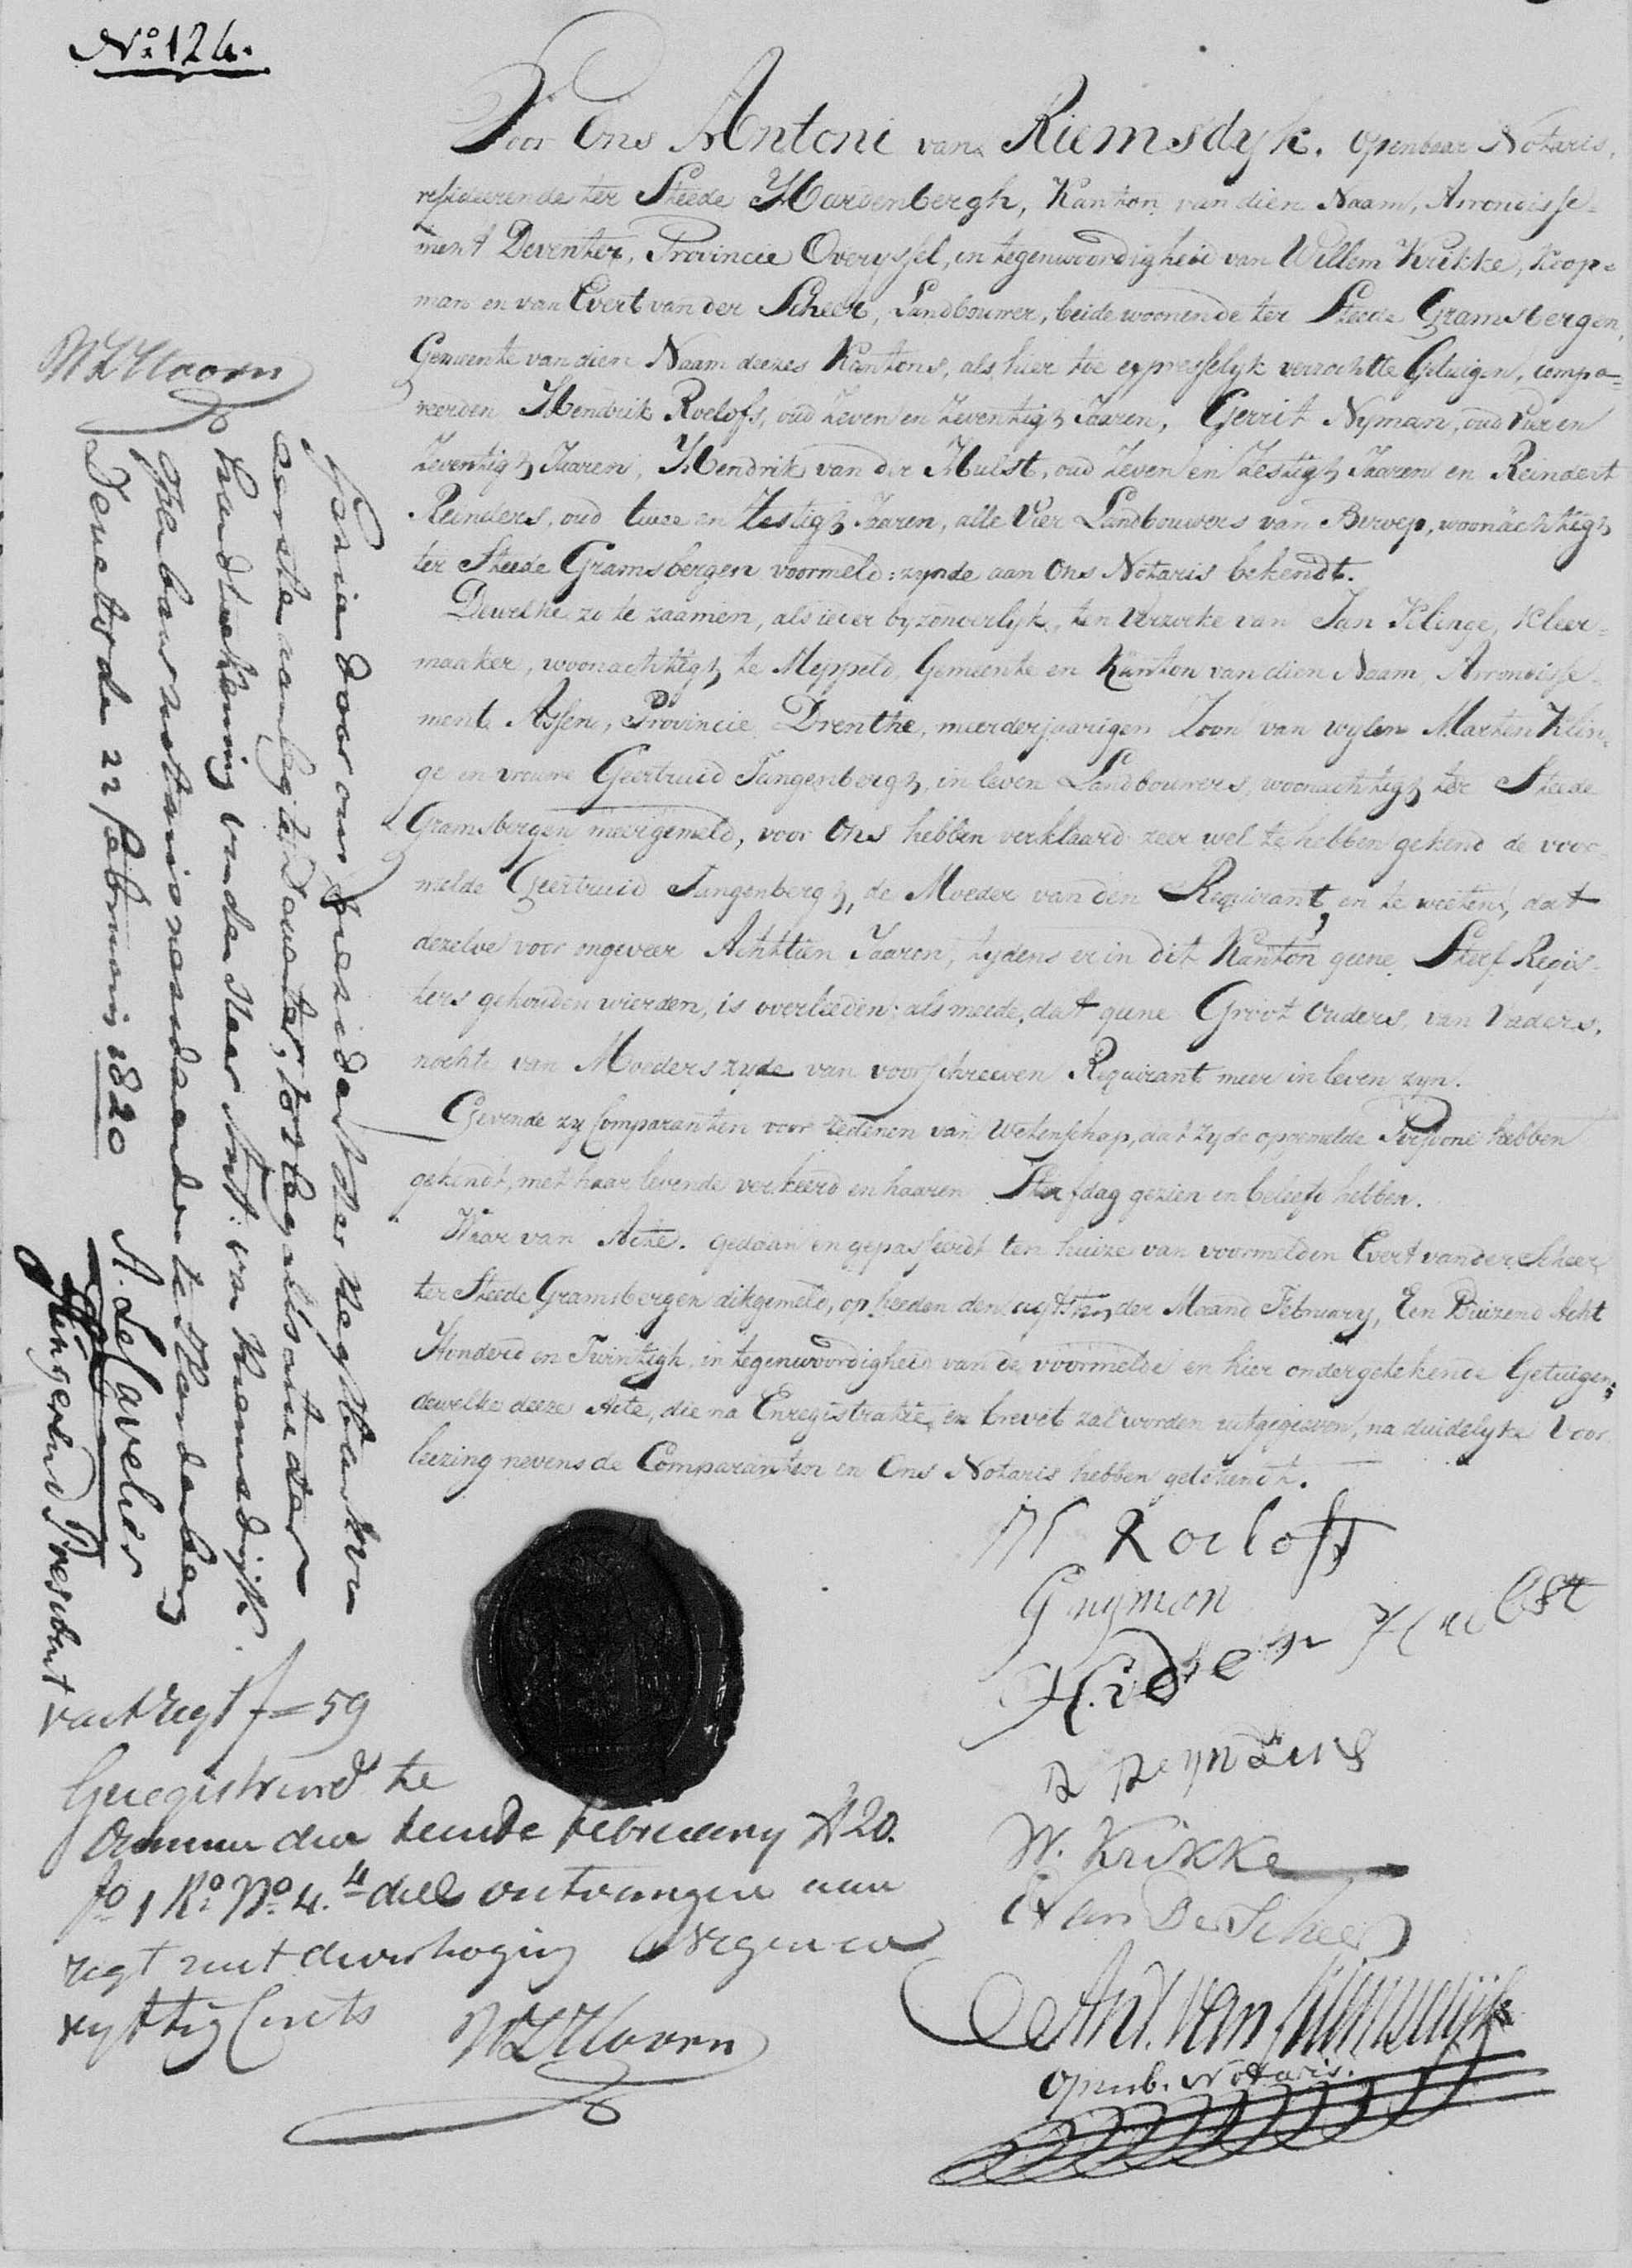 No. 124.
Voor Ons Antoni van Riemsdyk. Openbaar Notaris,
resideerende ter Steede Hardenbergh, Kanton van dien Naam, Arrondisse-
ment Deventer, Provincie Overyssel, in tegenwoordigheid van Willem Krikke, Koop-
man en van Evert van der Scheer, Landbouwer, beide woonende ter Steede Gramsbergen,
Gemeente van dien Naam deezes Kantons, als hier toe expresselyk verzochte Getuigen, compa-
reerden Hendrik Roelofs, oud Zeven en Zeventigh Jaaren, Gerrit Nyman, oud Vier en
Zeventigh Jaaren, Hendrik van der Hulst, oud Zeven en Zestigh Jaaren en Reindert
Reinders, oud twee en Zestigh Jaaren, alle Vier Landbouwers van Beroep, woonächtigh
ter Steede Gramsbergen voormeld: zynde aan Ons Notaris bekendt.
Dewelke zo te zaamen, als ieder byzonderlyk, ten Verzoeke van Jan Klinge, Kleer-
maaker, woonachtigh te Meppeld, Gemeente en Kanton van dien Naam, Arrondisse-
ment Assen, Provincie Drenthe, meerderjaarigen Zoon van wylen Marten Klin-
ge en vrouwe Geertruid Tangenbergh, in leven Landbouwers, woonachtigh ter Steede
Gramsbergen meergemeld, voor Ons hebben verklaard zeer wel te hebben gekend de voor-
melde Geertruid Tangenbergh, de Moeder van den Requirant, en te weeten, dat
dezelve voor ongeveer Achttien Jaaren, tydens er in dit Kanton geene Sterf Regis-
ters gehouden wierden, is overleeden; als meede, dat geene Groot Ouders, van Vaders,
nochte van Moeders zyde van voorschreeven Requirant meer in leven zyn.
Geevende zy Comparanten voor redenen van Wetenschap, dat zy de opgemelde Persoone hebben
gekendt, met haar levende verkeerd en haaren Sterfdag gezien en beleefd hebben.
Waar van Acte. gedaan en gepasseerdt ten huize van voormelden Evert van der Scheer
ter Steede Gramsbergen dikgemeld, op heeden den agtsten der Maand February, Een Duizend Acht
Honderd en Twintigh, in tegenwoordigheid van de voormelde en hier ondergetekende Getuigen;
dewelke deeze Acte, die na Enregistratie, en brevet zal worden uitgegeeven, na duidelyke Voor
leezing nevens de Comparanten en Ons Notaris hebben getekendt.
H Roelofs
G nyman
H. v d Hulst
R Reynders
W. Krikke
E Van Der Scheer
Ant. van Riemsdijk
openb. Notaris.
W L Hoorn
Gezien door ons President der Regtbank van
eersten aanleg te Deventer, tot legalisatie der
handtekening van den Heer Ant: van Riemsdijk
Openbaar notaris resideerende te Hardenberg
Deventer den 22 februarij 1820
A. de Cavelier
fungerend President
vast regt f = 59
Geregistreerd te
Ommen den tiende february 1820.
fo 1 Ro No. 4. 4 deel ontvangen aan
regt met de verhoging Negen en
vyftig Cents
W L Hoorn